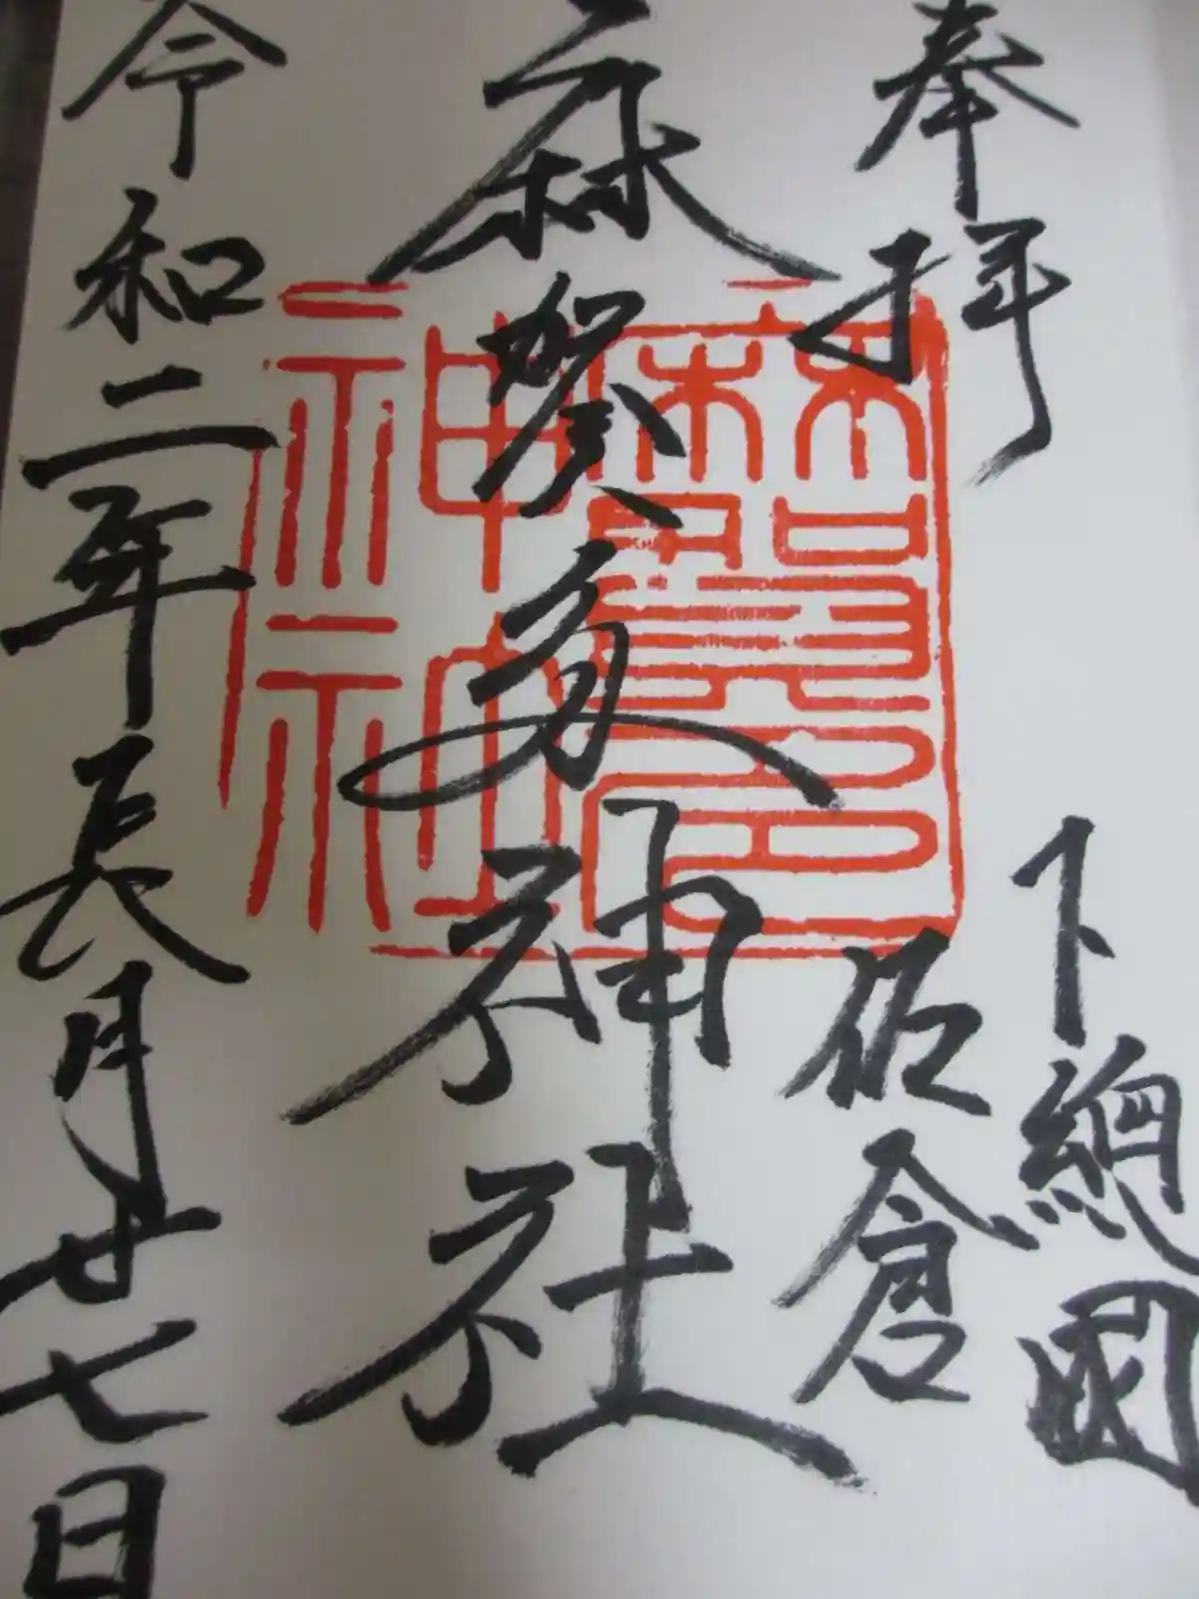 奉拝
下總國
佐倉
麻賀多神社
令和二年長月廿七日
麻賀多
神社